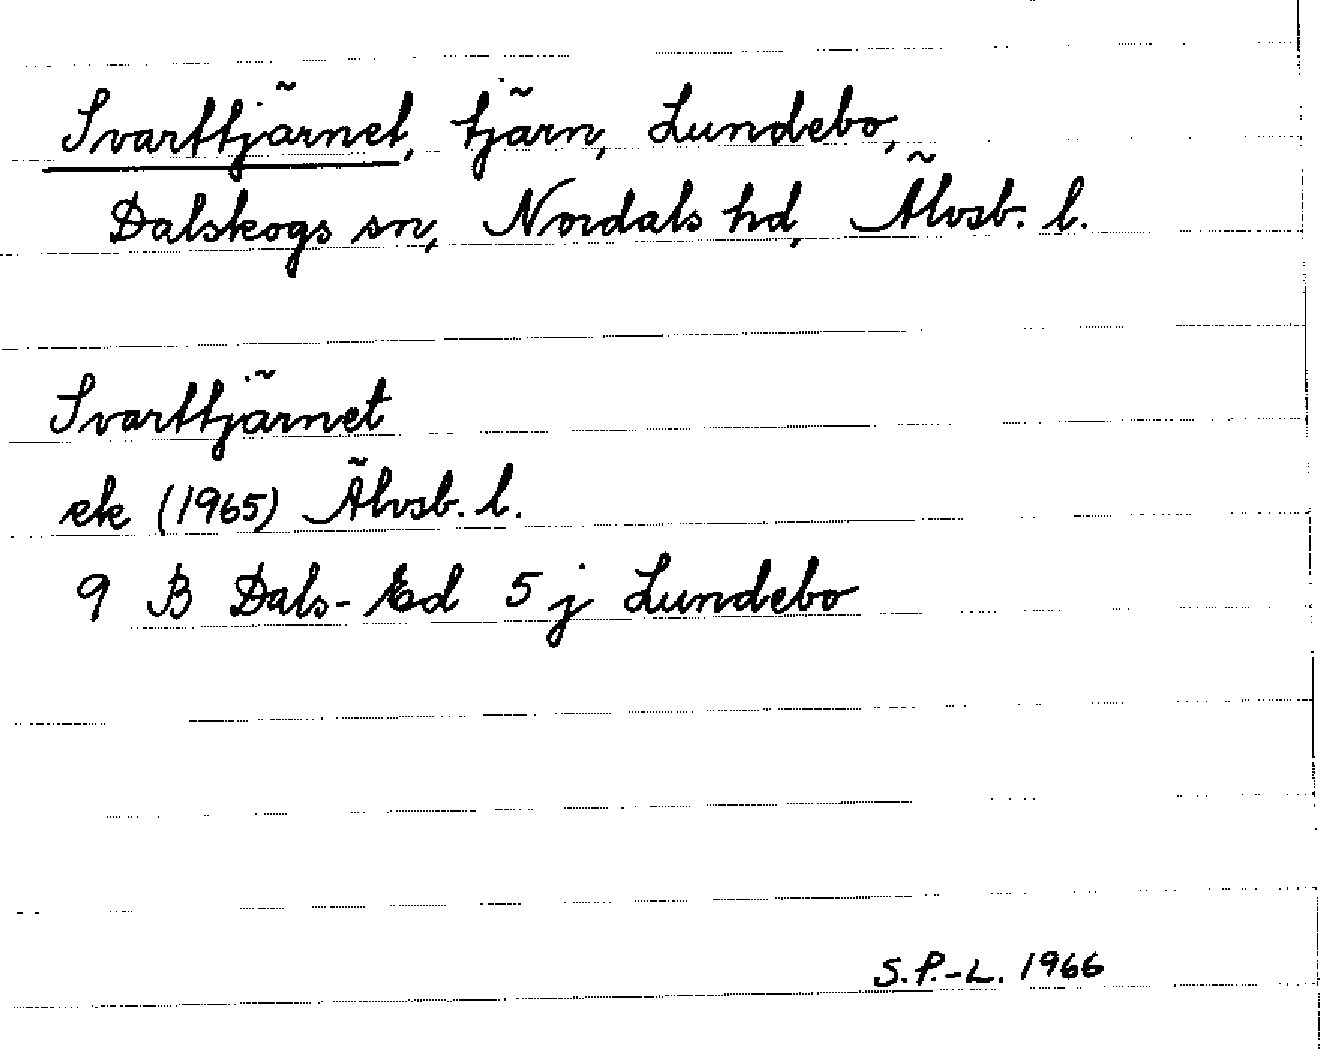 Svarttjärnet, tjärn, Lundebo,
Dalskogs sn, Nordals hd, Älvsb. l.
Svarttjärnet
ek (1965) Älvsb. l.
9 B Dals-Ed 5 j Lundebo
S.P.-L. 1966